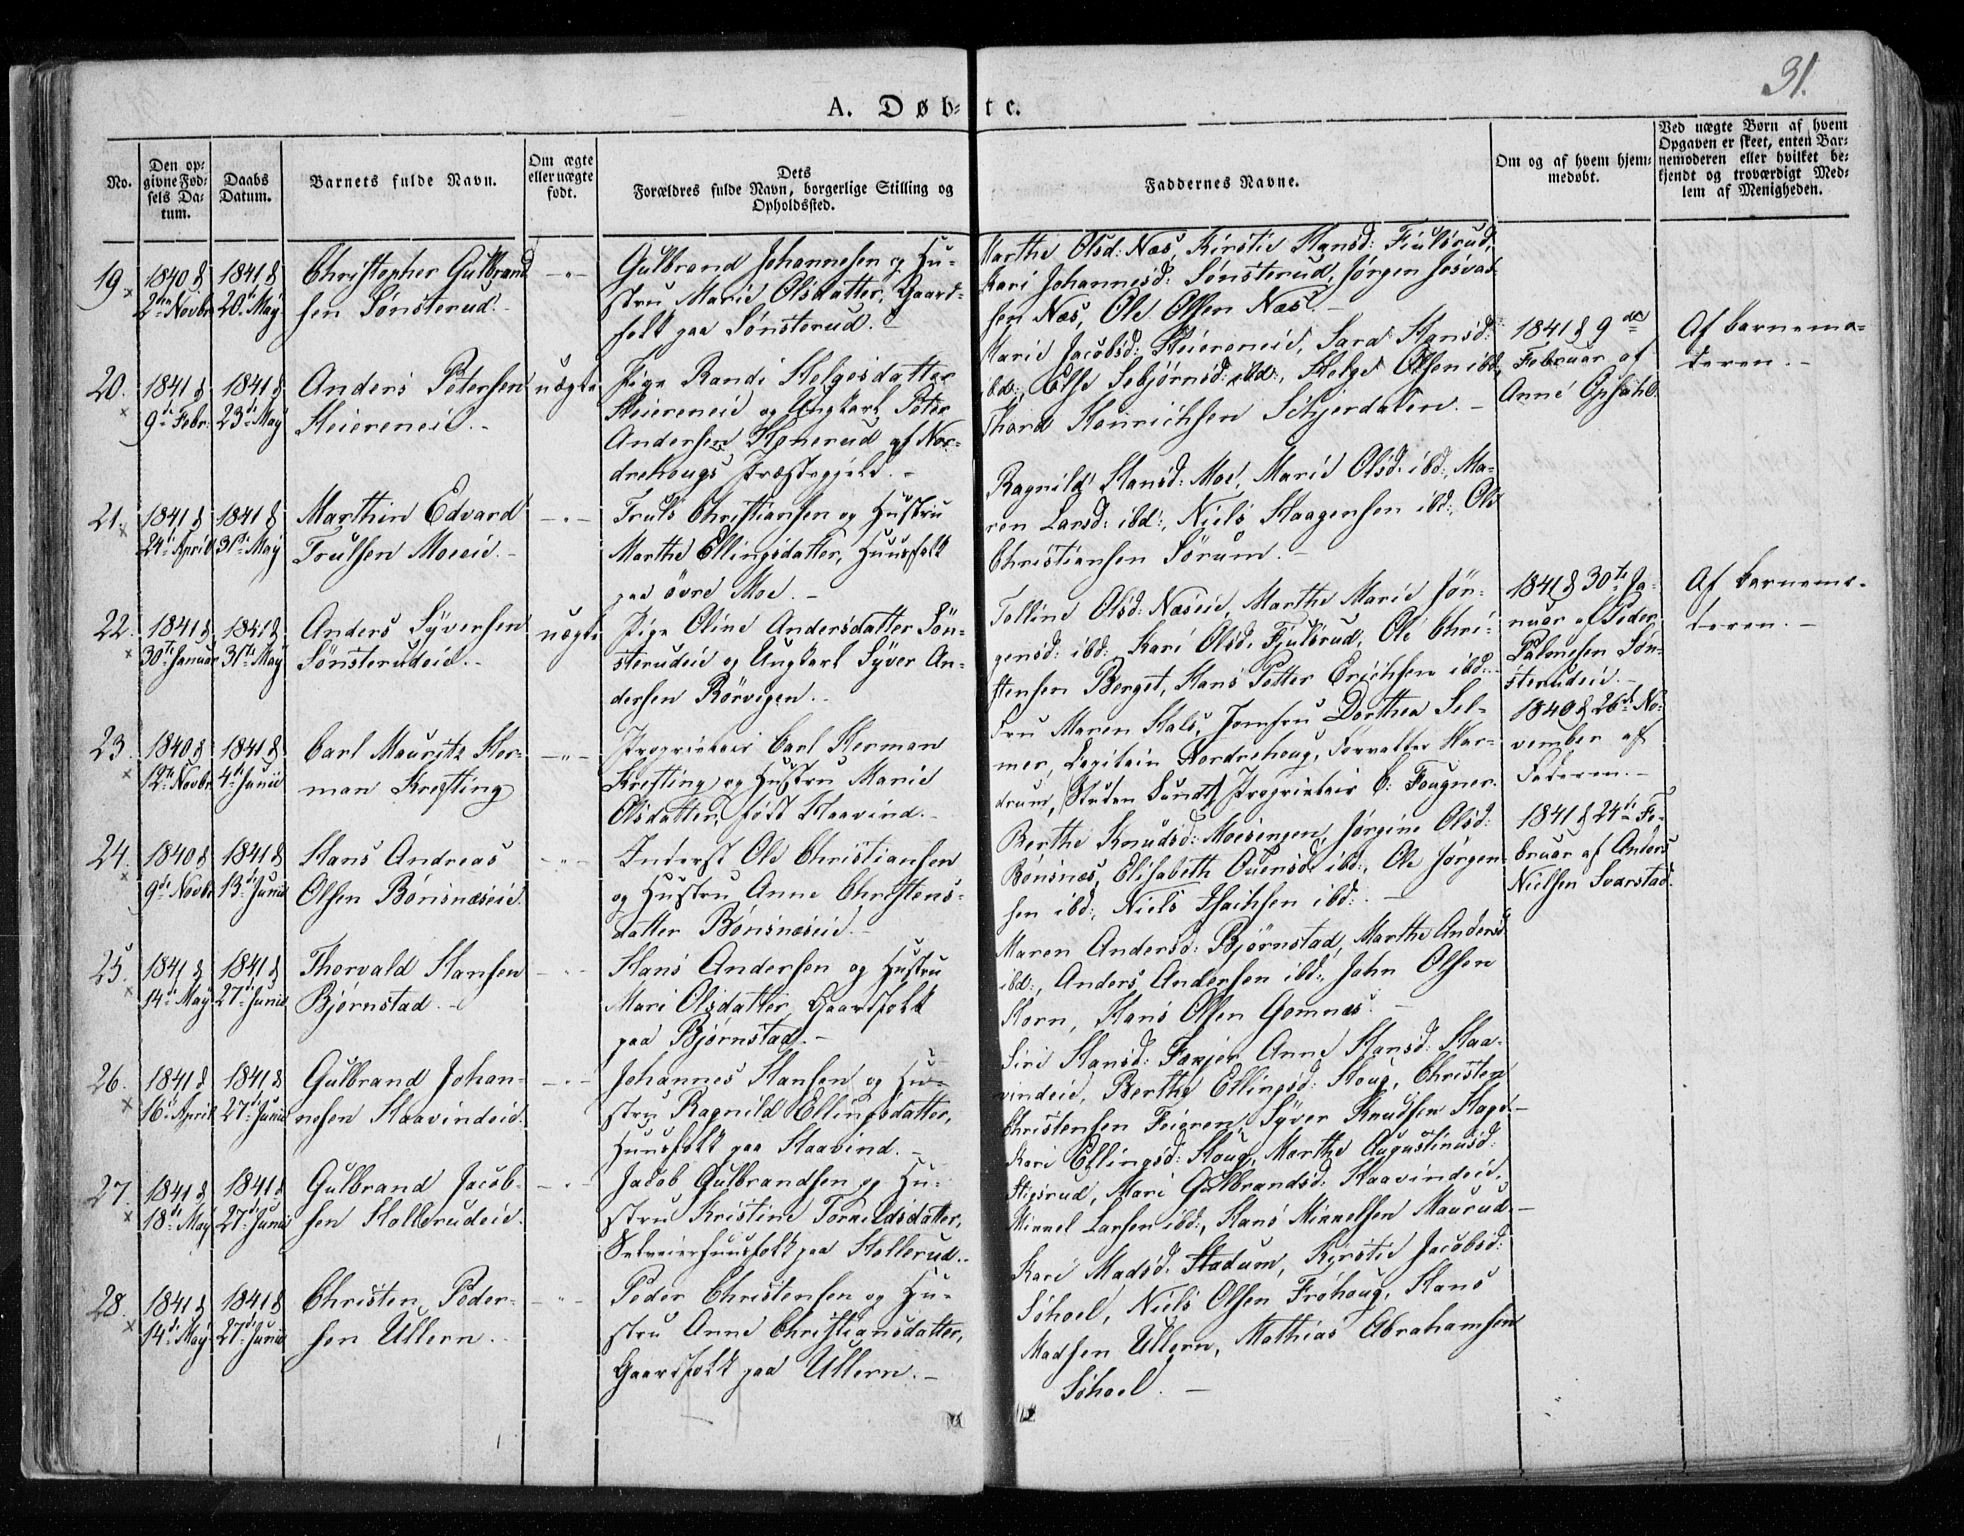 31.
A. Døb-te.
No.
Den op-
givne Fød-
sels Da-
tum.
Daabs
Datum.
Barnets fulde Navn.
Om ægte
eller uægte
født.
Dets
Forældres fulde Navn, borgerlige Stilling og
Opholdssted.
Faddernes Navne.
Om og af hvem hjem-
medøbt.
Ved uægte Børn af hvem
Opgaven er skeet, enten Bar-
nemoderen eller hvilket be-
kjendt og troværdigt Med-
lem af Menigheden.
19
1840 d
2den Novbr
1841 d
20de May
Christopher Gulbrand
sen Sønsterud.
Gulbrand Johannesen og Hu-
stru Marie Olsdatter, Gaard-
folk paa Sønsterud.
Marthe Olsd: Næs, Kirstie Hansd: Fiulsrud,
Kari Johannesd: Sønsterud, Jørgen Josvas-
sen Næs, Ole Olsen Næs.
20.
1841 d
9de Febr.
1841 d
23de May
Anders Petersen
Heiereneie.
uægte
Pige Randi Helgesdatter
Heiereneie og Ungkarl Peter
Andersen Honerud af Nor-
drehougs Præstegjeld.
Marie Jacobsd: Heiereneie, Sara Hansd:
ibd:, Else Sebjørnsd: ibd:, Helge Olsen ibd:
Thord Henrichsen Schjerdalen.
1841 d 9de
Februar af
Anne Opsahl.
Af barnemo-
deren.
21.
1841 d
24de April
1841 d
31te May
Marthin Edvard
Trulsen Moeeie.
Truls Christiansen og Hustru
Marthe Ellingsdatter, Huusfolk
paa øvre Moe.
Ragnild Hansd: Moe, Marie Olsd: ibd:, Ma-
ren Larsd: ibd:, Niels Haagensen ibd:, Ole
Christiansen Sørum.
22.
1841 d
30te Januar
1841 d
31te May
Anders Syversen
Sønsterudeie.
uægte
Pige Oline Andersdatter Søn-
sterudeie og Ungkarl Syver An-
dersen Rørvigen.
Tolline Olsd: Næseie, Marthe Marie Jør-
gensd: ibd: Kari Olsd. Fjulsrud, Ole Chri-
stensen Berget, Hans Petter Erichsen ibd:
1841 d 30te Ja-
nuar af Peder
Palmesen Søn-
sterudeie.
Af barnemo-
deren.
23.
1840 d
12te Novbr
1841 d
4de Junii
Carl Mauritz Her-
man Krefting
Proprietair Carl Herman
Krefting og Hustru Marie
Olsdatter, født Haavind.
Fru Maren Hals, Jomfru Dorthea Sel-
mer, Capitain Nordrehoug, Forvalter Har-
drum, Studen Sundt, Proprietair C: Fougner.
1840 d 26de No-
vember af
Faderen.
24.
1840 d
9de Novbr
1841 d
13de Junii
Hans Andreas
Olsen Bønsnæseie.
Inderst Ole Christiansen
og Hustru Anne Christens-
datter Bønsnæseie.
Berthe Knudsd: Moesengen, Jørgine Olsd:
Bønsnæs, Elisabeth Ouensd: ibd:, Ole Jørgen-
sen ibd:, Niels Isaichsen ibd:
1841 d 24de Fe-
bruar af Anders
Nielsen Svarstad.
25.
1841 d
14de May
1841 d
27de Junii
Thorvald Hansen
Bjørnstad.
Hans Andersen og Hustru
Mari Olsdatter Gaardfolk
paa Bjørnstad.
Maren Andersd: Bjørnstad, Marthe Andersd
ibd:, Anders Andersen ibd:, John Olsen
Horn, Hans Olsen Gomnæs.
26.
1841 d
16de April
1841 d
27de Junii
Gulbrand Johan-
nesen Haavindeie.
Johannes Hansen og Hu-
stru Ragnild Ellingsdatter,
Huusfolk paa Haavind.
Siri Hansd: Fexjer, Anne Hansd: Haa-
vindeie, Berthe Ellingsd: Houg, Christen
Christensen Feieren, Syver Knudsen Hage
27.
1841 d
18de May
1841 d
27de Junii
Gulbrand Jacob-
sen Hollerudeie.
Jacob Gulbrandsen og Hu-
stru Kristine Torkildsdatter,
Selveierhuusfolk paa Hollerud.
Kari Ellingsd: Houg, Marthe Augustinusd:
Stigsrud, Mari Gulbrandsd: Haavindeie,
Mikkel Larsen ibd:, Hans Mikkelsen Maurud.
28.
1841 d
14de May
1841 d
27de Junii
Christen Peder-
sen Ullern.
Peder Christensen og Hu-
stru Anne Christiansdatter,
Gaardfolk paa Ullern.
Kari Madsd. Stadum, Kirstie Jacobsd:
Søhoel, Niels Olsen Frøhoug, Hans
Madsen Ullern, Mathias Abrahamsen
Søhoel.